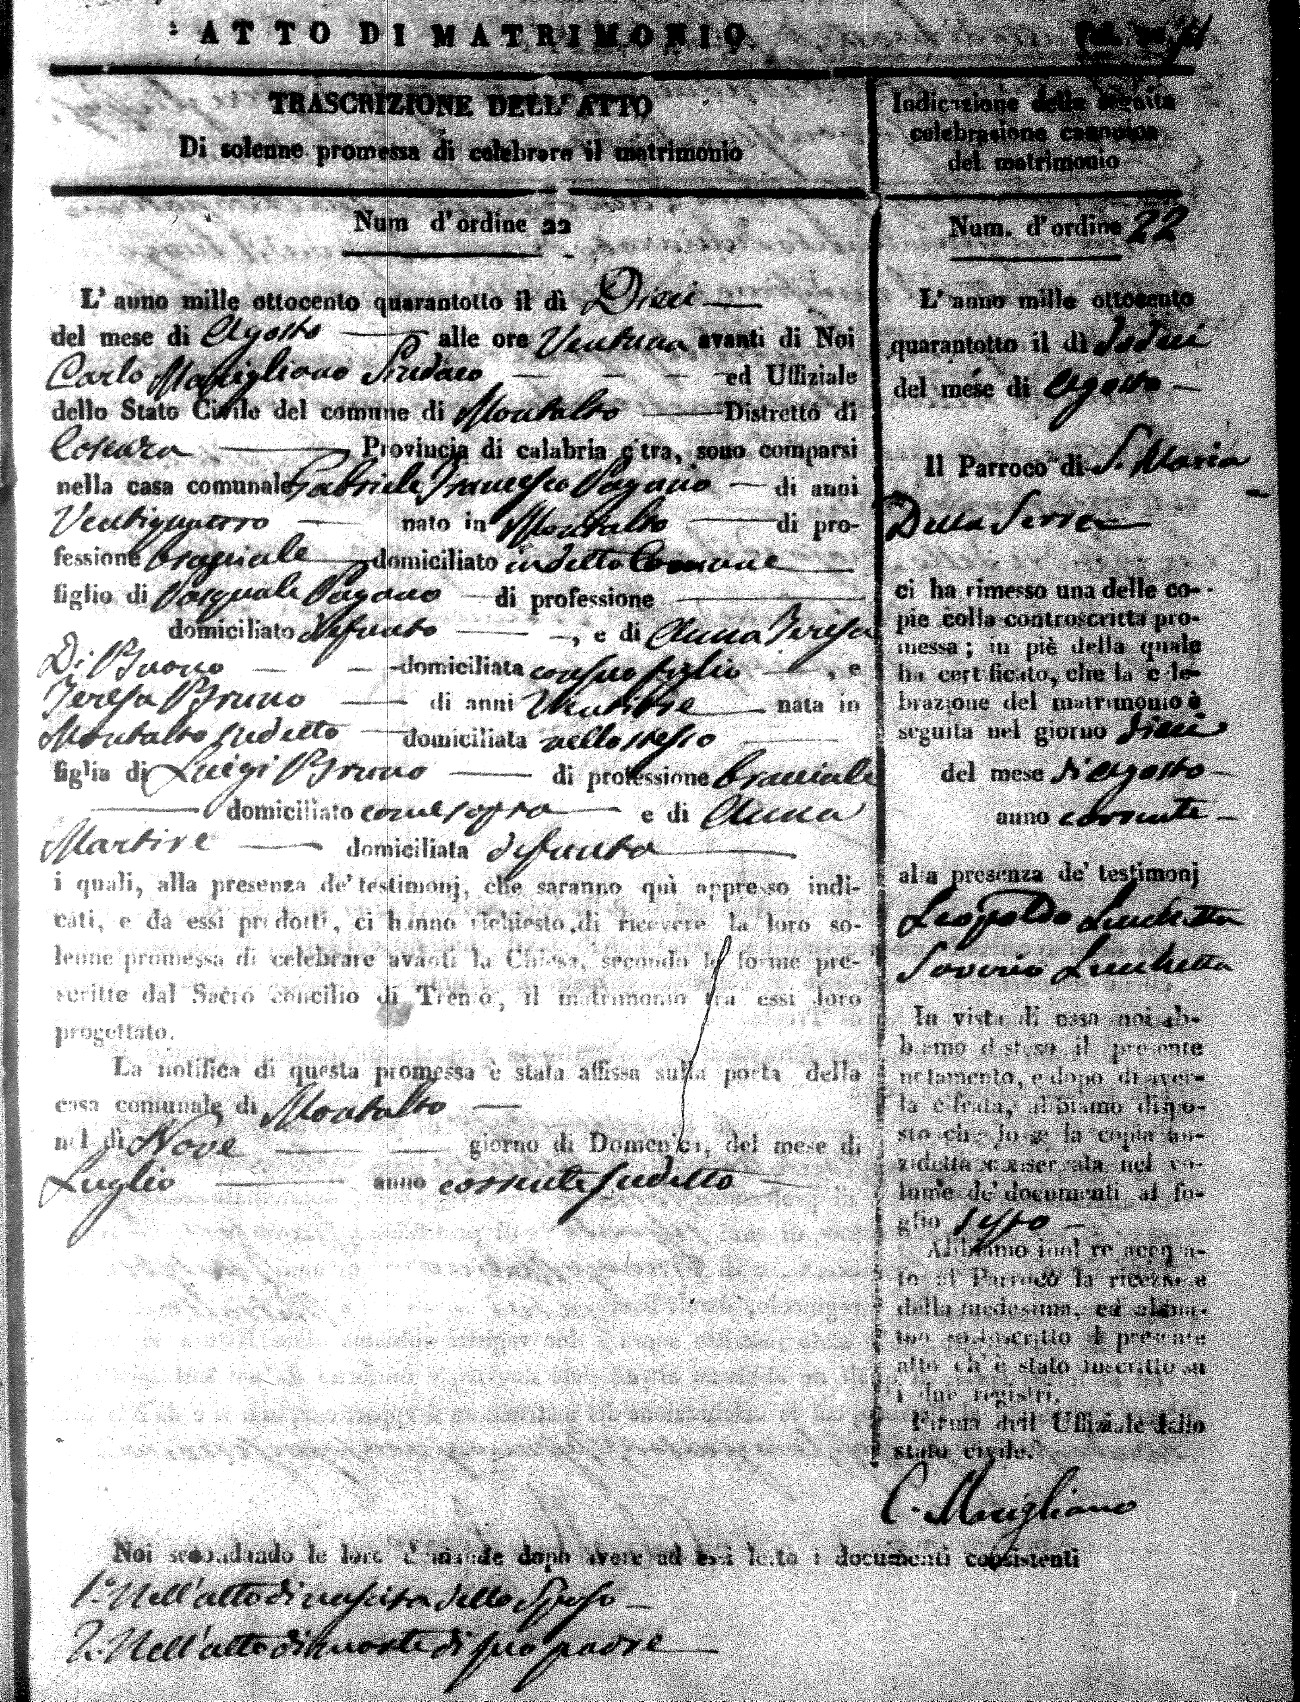 ATTO DI MATRIMONIO.
TRASCRIZIONE DELL' ATTO
Di solenne promessa di celebrare il matrimonio
Num d'ordine 22
L' anno mille ottocento quarantotto il dì Dieci
del mese di Agosto alle ore Ventuna avanti di Noi
Carlo Marigliano Sindaco ed Uffiziale
dello Stato Civile del comune di Montalto Distretto di
Cosenza Provincia di calabria c'tra, sono comparsi
nella casa comunale Gabriele Francesco Pagano di anni
Ventiquattro nato in Montalto di pro-
fessione bracciale domiciliato in detto Comune
figlio di Pasquale Pagano di professione
domiciliato defunto , e di Anna Teresa
Di Buono domiciliata con suo figlio , e
Teresa Bruno di anni nata in
Montalto sudetto domiciliata nello stesso
figlia di Luigi Bruno di professione bracciale
domiciliato come sopra e di Anna
Martire domiciliata defunta
i quali, alla presenza de' testimonj, che saranno quì appresso indi-
cati, e da essi prodotti, ci hanno richiesto di ricevere la loro so-
lenne promessa di celebrare avanti la Chiesa, secondo le forme pre-
scritte dal Sacro Concilio di Trento, il matrimonio tra essi loro
progettato.
La notifica di questa promessa è stata affissa sulla porta della
casa comunale di Montalto
nel dì Nove giorno di Domenica, del mese di
Luglio anno corrente sudetto
Indicazione della seguita
celebrazione canonica
del matrimonio
Num. d'ordine 22
L' anno mille ottocento
quarantotto il dì Dodici
del mese di Agosto
Il Parroco di S. Maria
Della Serra
ci ha rimesso una delle co-
pie colla controscritta pro-
messa; in piè della quale
ha certificato, che la cele-
brazione del matrimonio è
seguita nel giorno dieci
del mese di Agosto
anno corrente
alla presenza de' testimonj
Leopoldo Lucchetta
Saverio Lucchetta
In vista di essa noi ab-
biamo disteso il presente
notamento, e dopo di aver-
la cifrata, abbiamo dispo-
sto che fosse la copia an-
zidetta conservata nel vo-
lume de' documenti al fo-
glio
Abbiamo inoltre accusa-
to al Parroco la ricezione
della medesima, ed abbia-
mo sottoscritto il presente
atto ch' è stato inscritto su
i due registri.
Firma dell' Uffiziale dello
stato civile.
C. Marigliano
Noi secondando le loro dimande dopo avere ad essi letto i documenti consistenti
1.° Nell' atto di nascita dello Sposo
2.° Nell' atto di morte di suo padre